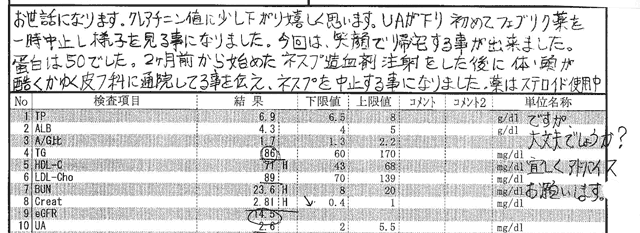 お世話になります。クレアチニン値に少し下がり嬉しく思います。UAが下り初めてフェブリク薬を
一時中止し様子を見る事になりました。今回は、笑顔で帰宅する事が出来ました。
蛋白は50でした。2ヶ月前から始めたネスプ造血剤注射をした後に体・頭が
酷くかゆく皮フ科に通院してる事を伝え、ネスプを中止する事になりました。薬はステロイド使用中
No 検査項目 結果 下限値 上限値 コメント コメント2 単位名称
1 TP 6.9 6.5 8 g/dl ですが、
2 ALB 4.3 4 5 g/dl 大丈夫でしょうか?
3 A/G比 1.7 1.3 2.2
4 TG 86 60 170 mg/dl
5 HDL-C 71 H 43 68 mg/dl 宜しくアドバイス
6 LDL-Cho 89 70 139 mg/dl
7 BUN 23.6 H 8 20 mg/dl お願いします。
8 Creat 2.81 H 0.4 1 mg/dl
9 eGFR 14.5
10 UA 2.6 2 5.5 mg/dl